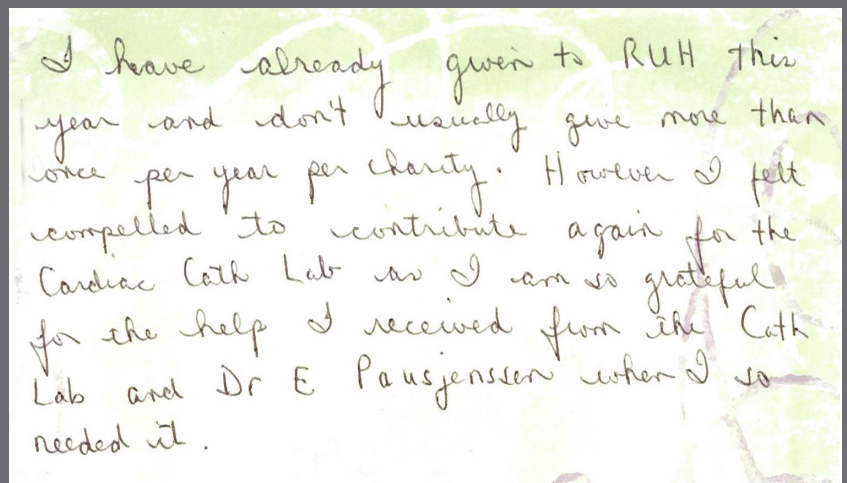 I have already given to RUH this
year and don't usually give more than
once per year per charity. However I felt
compelled to contribute again for the
Cardiac Cath Lab as I am so grateful
for the help I received from the Cath
Lab and Dr E Pausjenssen when I so
needed it.